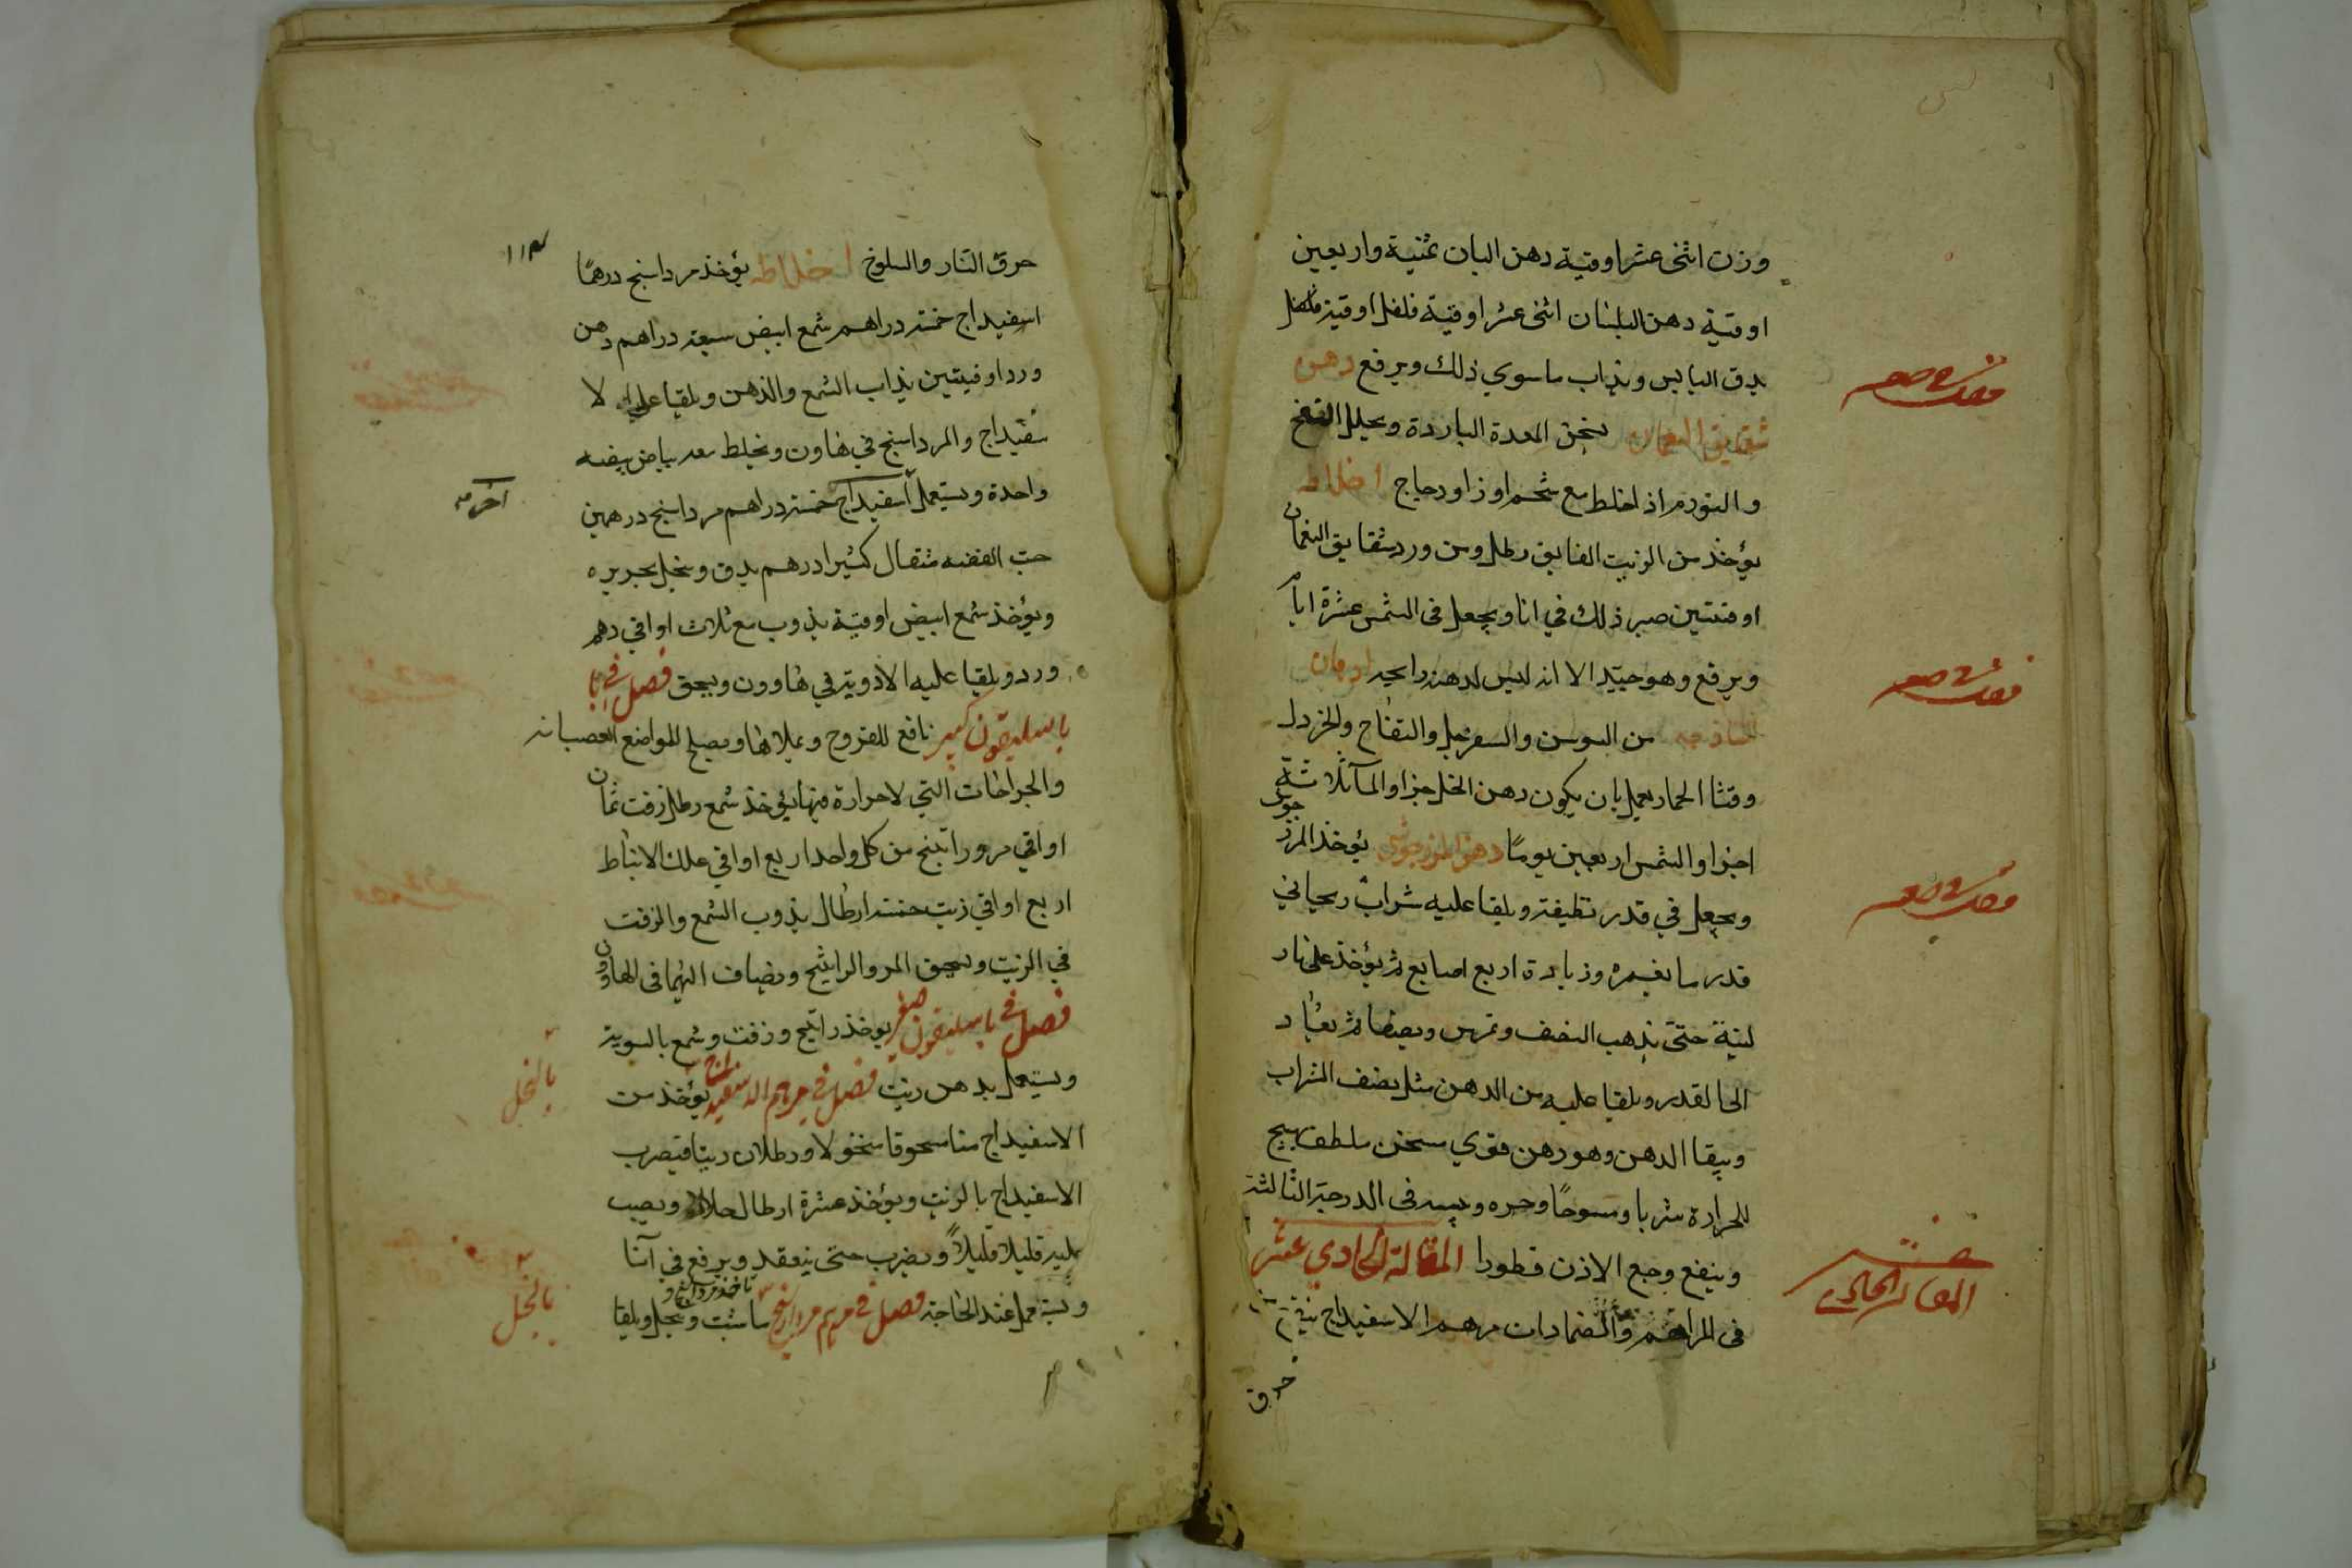 وزت اثنى عشر اوقية دهن البان ثمنية واربعين
اوقية دهن البلسان اثنى عشر اوقية فلفل اوقية
يدق اليابس ويذاب ماسوي ذلك ويرفع دهن
شقايق النعمان يسخن المعدة الباردة ويحلل النفخ
والتورم اذا خلط مع شحم اوز او دجاج اخلاط
يؤخذ من الزيت الفايق رطل ومن ورد شقايق النعمان
اوقيتين صير ذلك في انا ويجعل فى الشمس عشرة ايام
ويرفع وهو جيد الا انه ليس لدهنه رايحه ادهان
من السوسن والسفرجل والتفاح والخردل
وقثا الحمار يعمل بان يكون دهن الخل جزا والما ثلاثة
اجزا والشمس اربعين يومًا دهن المرزجوش يؤخذ المرزجوش
ويجعل في قدر نظيفة ويلقا عليه شراب ريحاني
قدر ما يغمره وزيادة اربع اصابع ثم يؤخذ على نار
لينة حتى يذهب النصف وتمرس ويصفا ثم يعاد
الى القدر ويلقا عليه من الدهن مثل نصف الشراب
ويبقا الدهن وهو دهن قوي مسخن ملطف يهيج
للحرارة شربا ومسوحًا وحره ويبسه فى الدرجة الثالثة
وينفع وجع الاذن قطورا المقالة الحادي عشر
فى المراهم والضمادات مرهم الاسفيداج ينفع
حرق
المقالة الحادي
١١٣
حرق النار والسلوخ اخلاطه يؤخذ مرداسنج درهمًا
اسفيداج خمسة دراهم شمع ابيض سبعة دراهم دهن
ورد اوقيتين يذاب الشمع والدهن ويلقيا على الا
سفيداج والمرداسنج في هاون ويخلط معه بياض بيضه
واحدة ويستعمل اسفيداج خمسة دراهم مرداسنج درهمين
حب الفضه مثقال كثيرا درهم يدق وينخل بحريره
ويؤخذ شمع ابيض اوقية يذوب مع ثلاث اواقي دهن
ورد ويلقيا عليه الادوية في هاوون ويسحق فصل في
باسليقون كبير نافع للقروح ويملاها ويصلح للمواضع العصبانه
والجراحات التي لا حرارة فيها يؤخذ شمع رطل زفت ثمان
اواقي مر وراتينج من كل واحد اربع اواقي علك الانباط
اربع اواقي زيت خمسة ارطال يذوب الشمع والزفت
في الزيت ويسحق المر والراتينج ويضاف اليهما فى الهاون
فصل في باسليقون صغير يوخذ راتينج وزفت وشمع بالسوية
ويستعمل بدهن زيت فصل في مرهم الاسفيداج يؤخذ من
الاسفيداج منا مسحوقا منخولا ورطلان زيتا فيضرب
الاسفيداج بالزيت ويؤخذ عشرة ارطال خلا ويصب
عليه قليلا قليلاً ويضرب حتى ينعقد ويرفع في آنا
ويستعمل عند الحاجة فصل في مرهم مرداسنج تاخذ مرداسنج ماشئت وينخل ويلقا
اخر منه
بالخل
بالخل